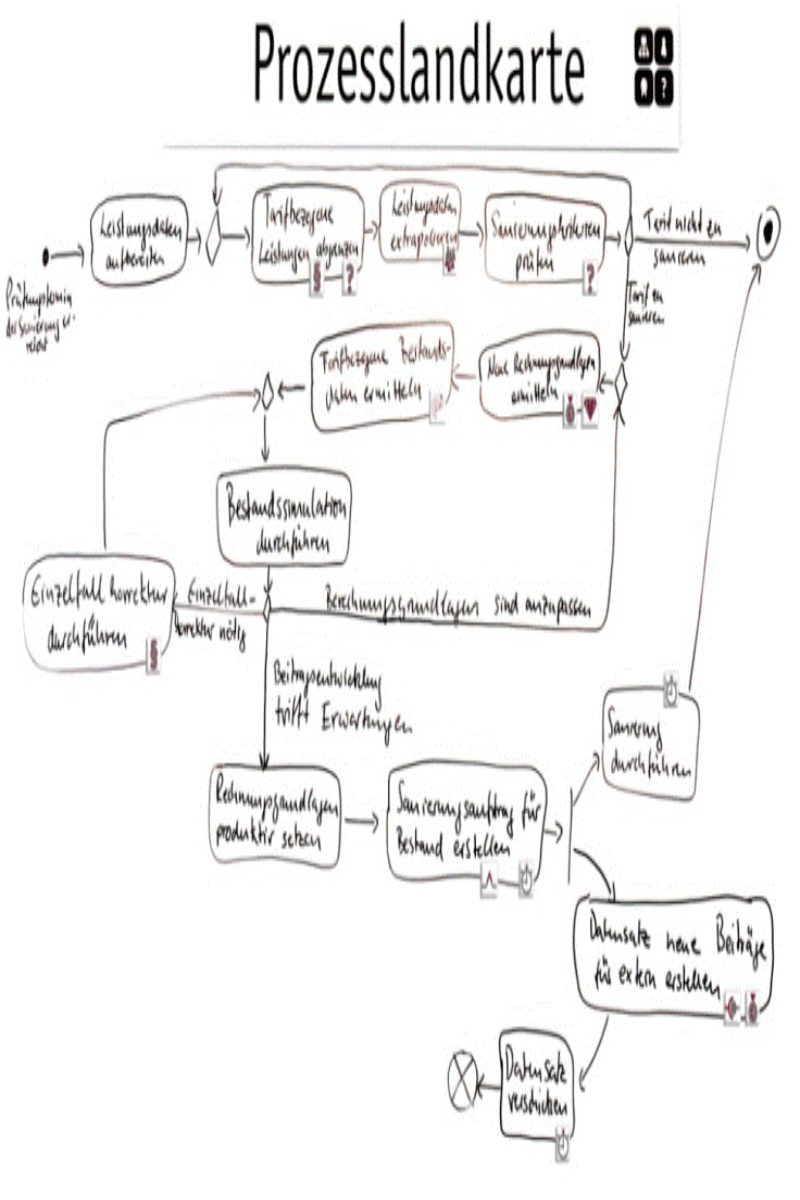 Prozesslandkarte
Leistungsdaten
aufbereiten
Tarifbezogene
Leistungen abgrenzen
Leistungsdaten
extrapolieren
Sanierungskriterien
prüfen
Tarif nicht zu
sanieren
Prüfungstermin
der Sanierung er-
reicht
Tarif zu
sanieren
Tarifbezogene Bestands-
daten ermitteln
Neue Rechnungsgrundlagen
ermitteln
Bestandssimulation
durchführen
Einzelfallkorrektur
durchführen
Einzelfall-
korrektur nötig
Rechnungsgrundlagen sind anzupassen
Beitragsentwicklung
trifft Erwartungen
Sanierung
durchführen
Rechnungsgrundlagen
produktiv setzen
Sanierungsauftrag für
Bestand erstellen
Datensatz neue Beiträge
für extern erstellen
Datensatz
verschicken